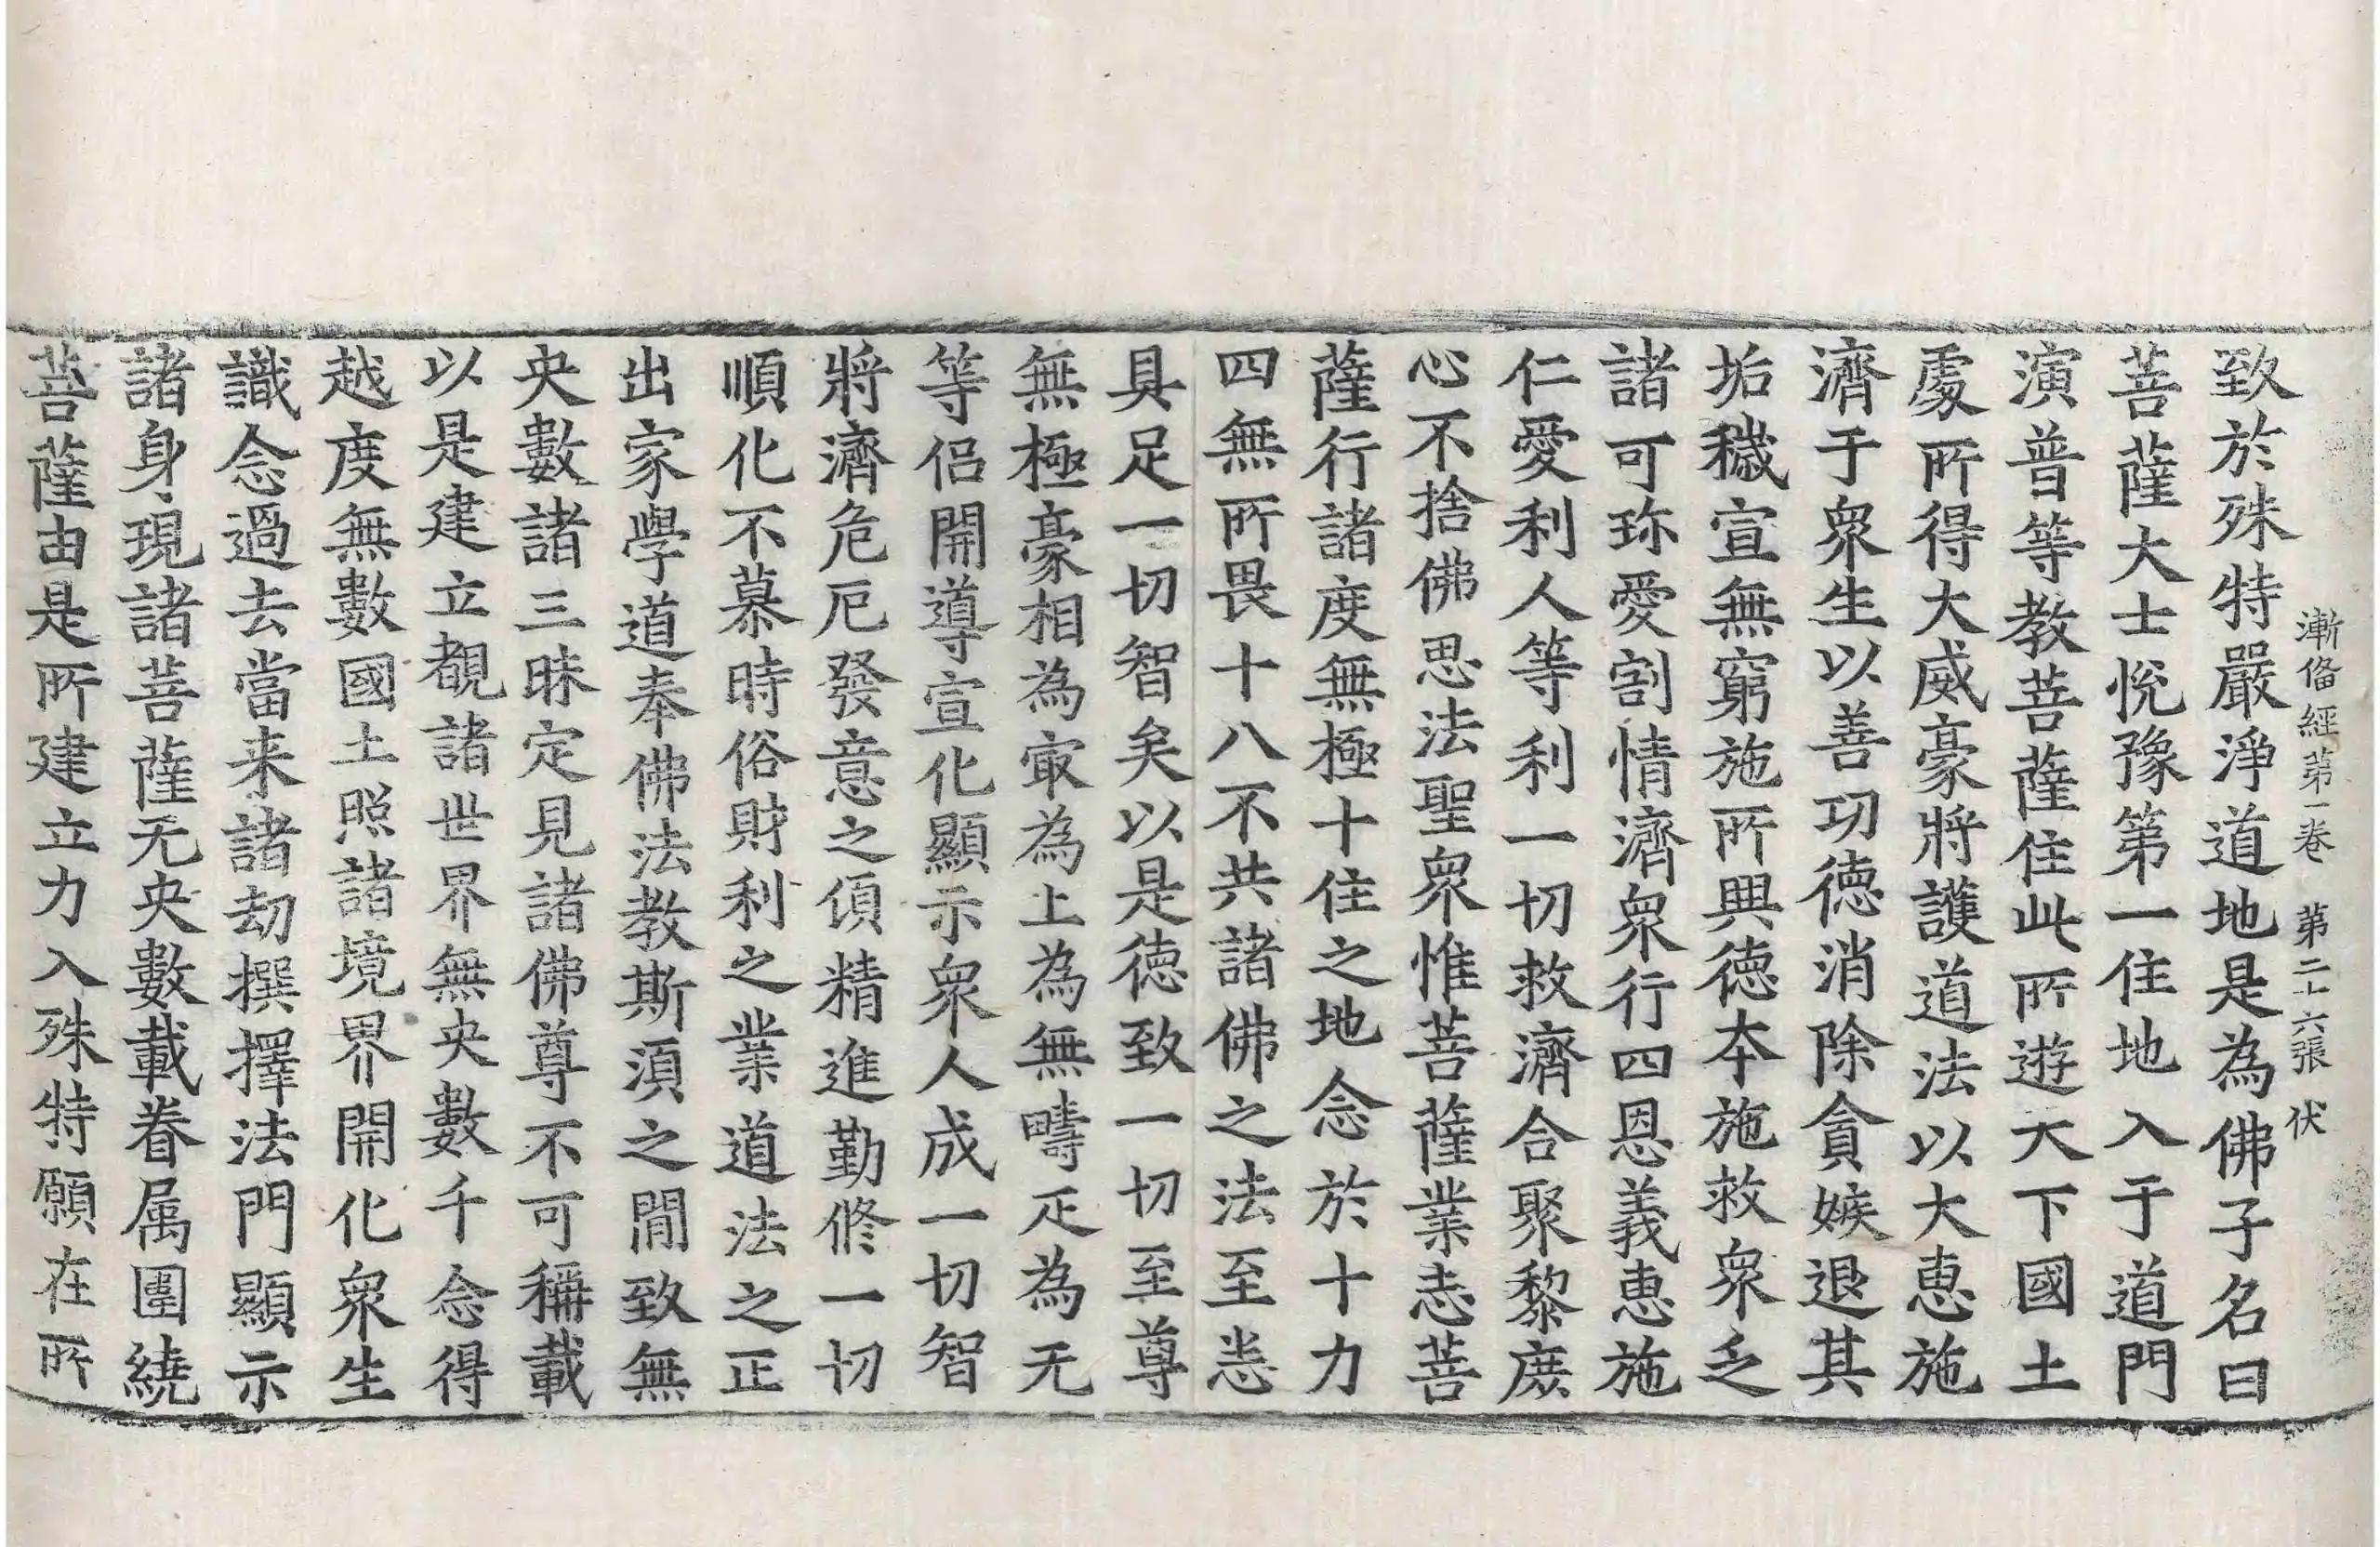 漸俻經第一卷　第二十六張　伏
致於殊特嚴淨道地是為佛子名曰
菩薩大士悅豫第一住地入于道門
演普等教菩薩住此所遊天下國土
處所得大威豪將護道法以大惠施
濟于眾生以善功德消除貪嫉退其
垢穢宣無窮施所興德本施救眾乏
諸可珎愛割情濟眾行四恩義惠施
仁愛利人等利一切救濟合聚黎庶
心不捨佛思法聖眾惟菩薩業志菩
薩行諸度無極十住之地念於十力
四無所畏十八不共諸佛之法至恙
具足一切智矣以是德致一切至尊
無極豪相為㝡為上為無疇疋為无
等侶開導宣化顯示眾人成一切智
將濟危厄發意之傾精進勤修一切
順化不慕時俗財利之業道法之正
出家學道奉佛法教斯須之閒致無
央數諸三昧定見諸佛尊不可稱載
以是建立覩諸世界無央數千念得
越度無數國土照諸境界開化眾生
識念過去當来諸劫撰擇法門顯示
諸身現諸菩薩无央數載眷属圍繞
菩薩由是所建立力入殊特願在所